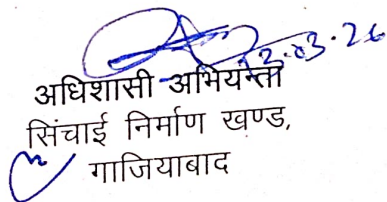 12.03.26
अधिशासी अभियन्ता
सिंचाई निर्माण खण्ड,
गाजियाबाद